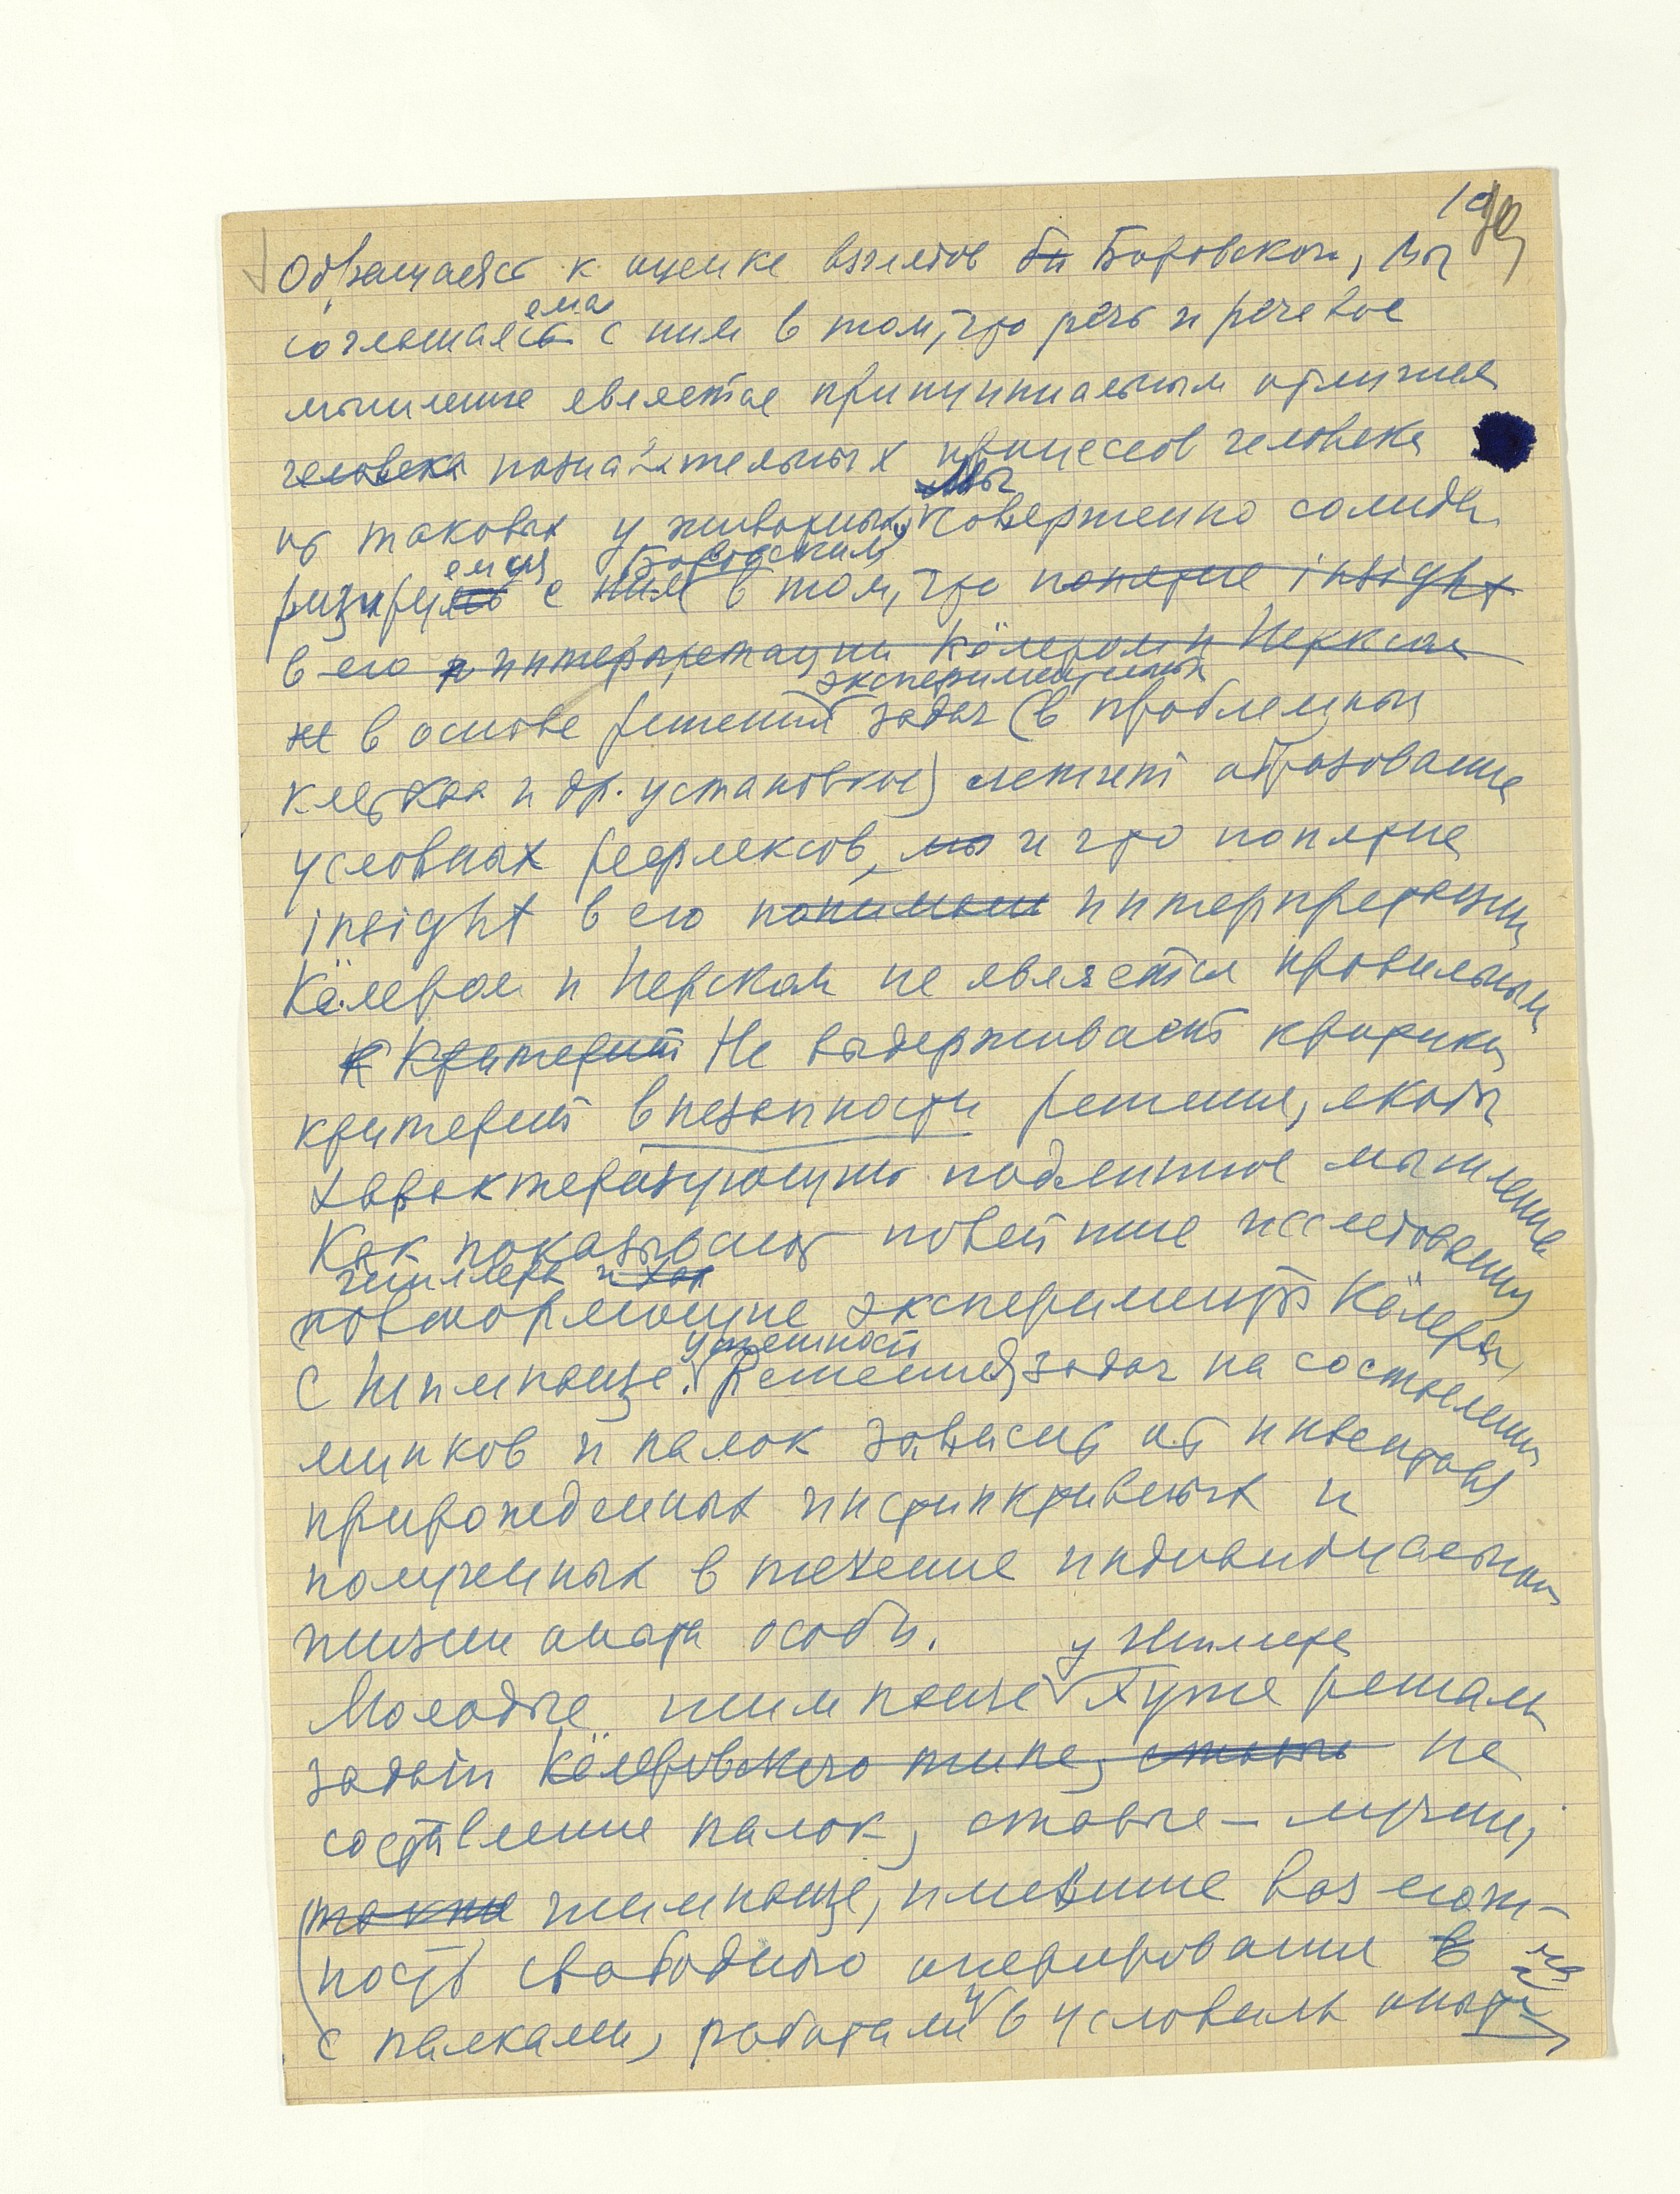 19
Обращаясь к оценке взглядов бы Боровского, мы
соглашаясь емся с ним в том, что речь и речевое
мышление является принципиальным отличием
человека познавательных процессов человека
от таковых у животных, Мы совершенно солида
ризируясь емся с ним Боровским в том, что понятие insight
в его интерпретации Кёлером и Иерксом
не в основе решений экспериментальных задач (в проблемных
клетках и др. установках) лежит образование
условных рефлексов, мы и что понятие
insight в его понимани интерпретации
Кёлером и Иерксом не является правильным
К Критерий Не выдерживает критики
критерий внезапности решения, якобы
характеризующий подлинное мышление
Как показывают новейшие исследования
Шиллера и
повторяющие эксперименты Кёлера,
с шимпанзе. успешность Решений задач на составлении
ящиков и палок зависит от инвентаря
прирожденных инстинктивных и
полученных в течение индивидуальной
жизни опыта особи.
Молодые шимпанзе у Шиллера хуже решали
задачи Кёлеровского типа, старые на
составление палок, старые – лучше,
также шимпанзе, имевшие возмож-
ность свободного оперирования в
с палками, работали и в условиях опыта